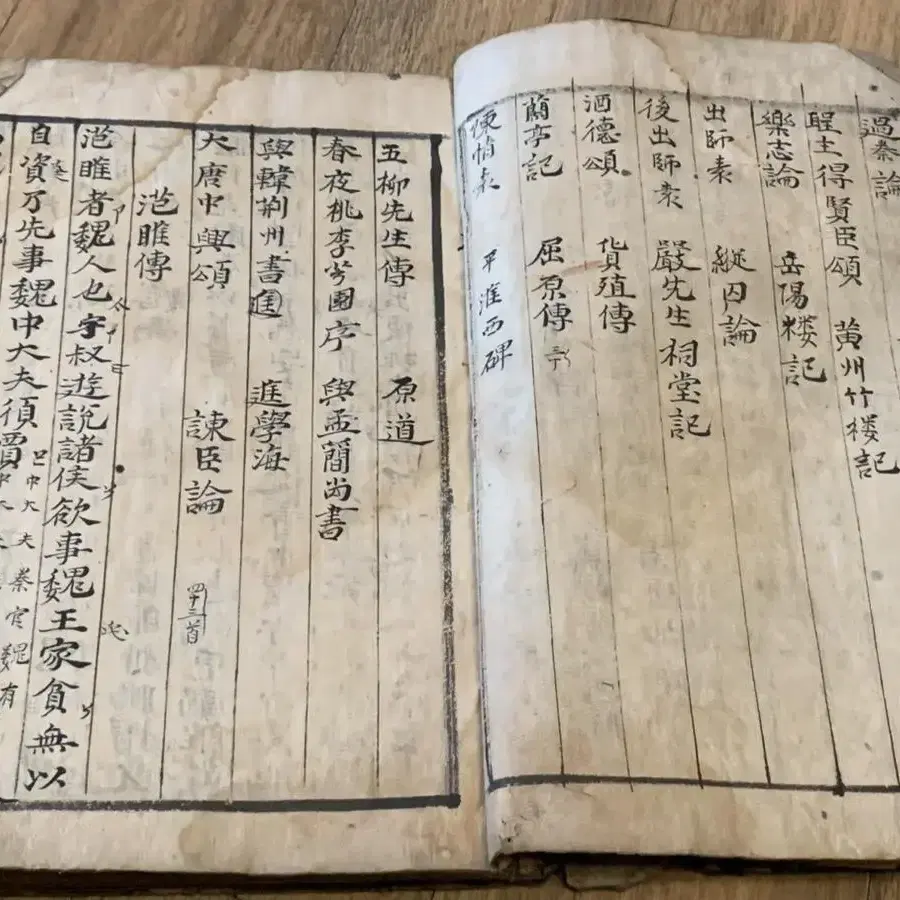 過秦論
聖主得賢臣頌 黄州竹楼記
樂志論 岳陽楼記
出師表 縱囚論
後出師表 嚴先生祠堂記
酒德頌 貨殖傳
蘭亭記 屈原傳
陳情表 平淮西碑
五柳先生傳 原道
春夜桃李芳園序 與孟簡尚書
與韓荊州書 進學海
大唐中興頌 諌臣論 四十三首
范睢傳
范睢者魏人也字叔遊說諸侯欲事魏王家貧無以
自資乃先事魏中大夫須賈
中大夫秦官魏有